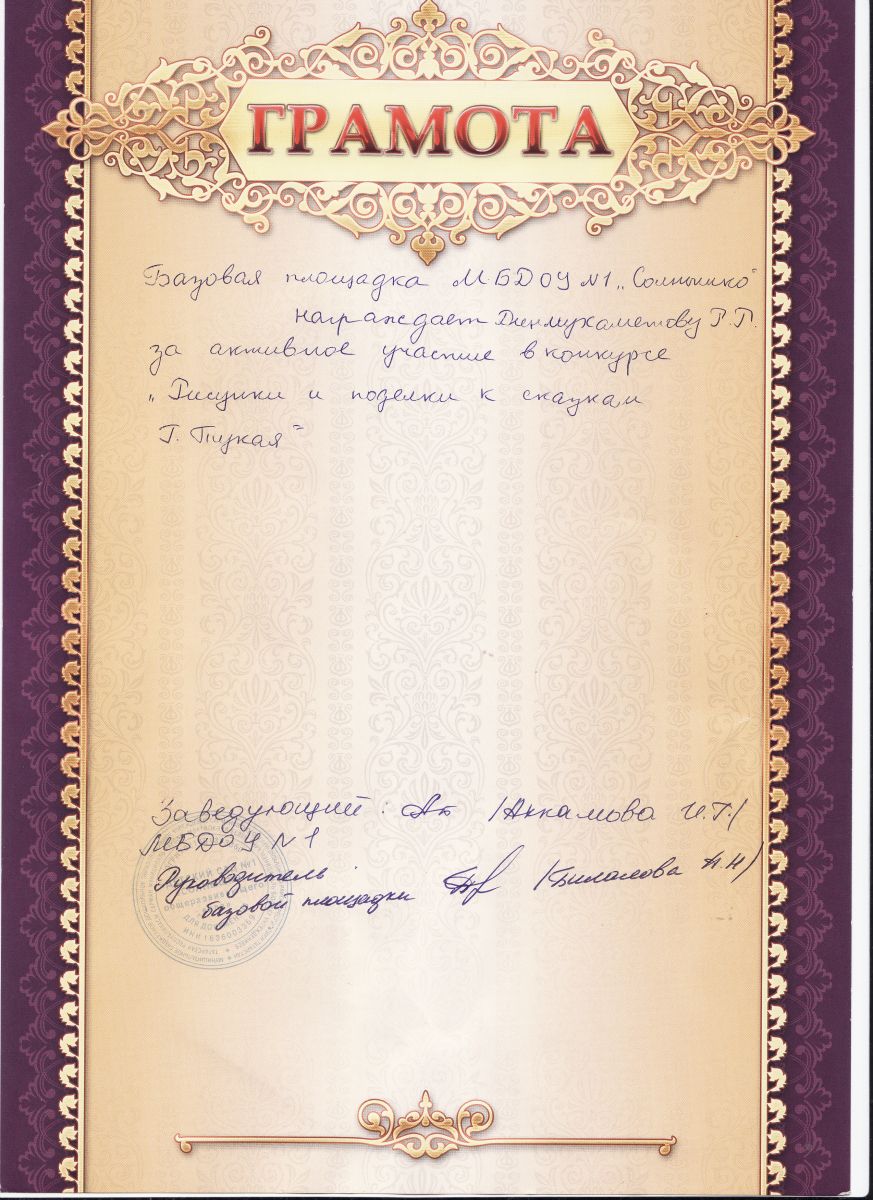 ГРАМОТА
Базовая площадка МБДОУ №1 „Солнышко"
награждает Динмухаметову Р.Г.
за активное участие в конкурсе
„Рисунки и поделки к сказкам
Г. Тукая"
Заведующий: /Аккамова И.Т./
МБДОУ №1
Руководитель
базовой площадки /Билалова
САД №1
общеразвивающего
ИНН